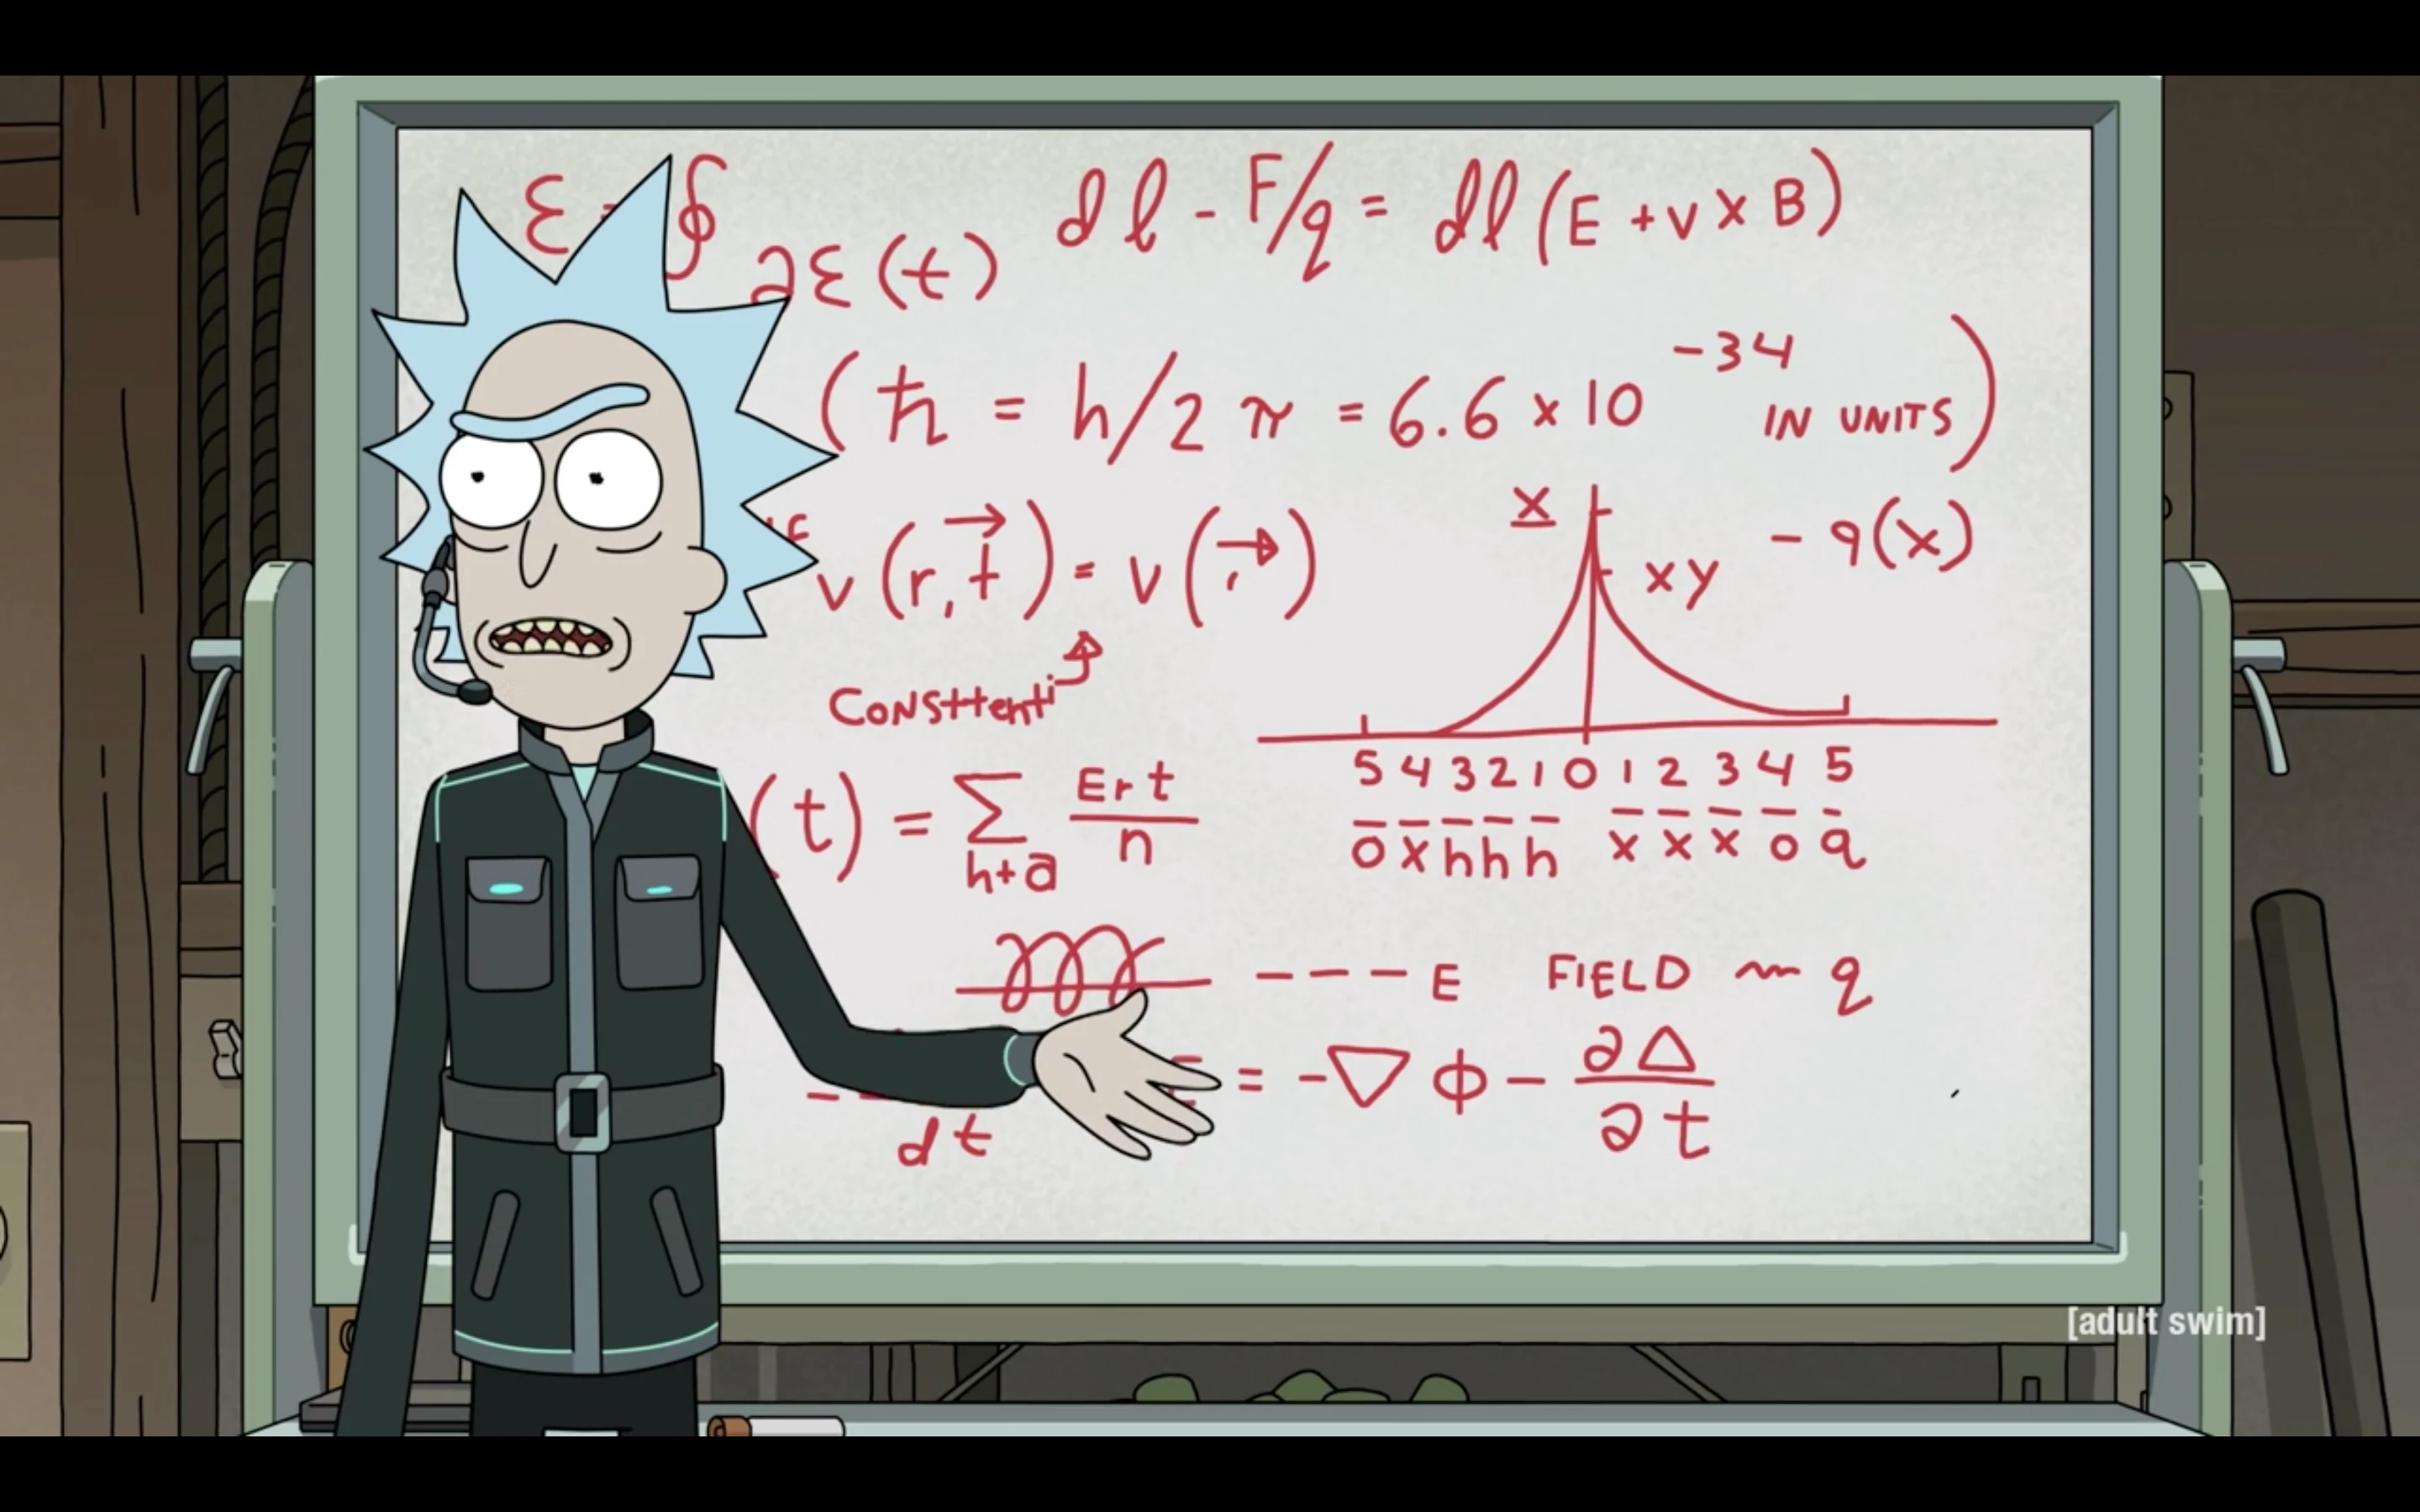 ε = ∮ ∂ε(t) dl - F/q = dl (E + v x B)
(ħ = h/2 π = 6.6 x 10 -34 IN UNITS)
IF
v (r, t→) = v (, →)
CONSttenti
x
xy - 9(x)
5 4 3 2 1 0 1 2 3 4 5
o x h h h x x x o q
(t) = Σ h+a Ert/n
---E FIELD ~ q
E = -▽ φ - ∂Δ/∂t
-- dt
[adult swim]